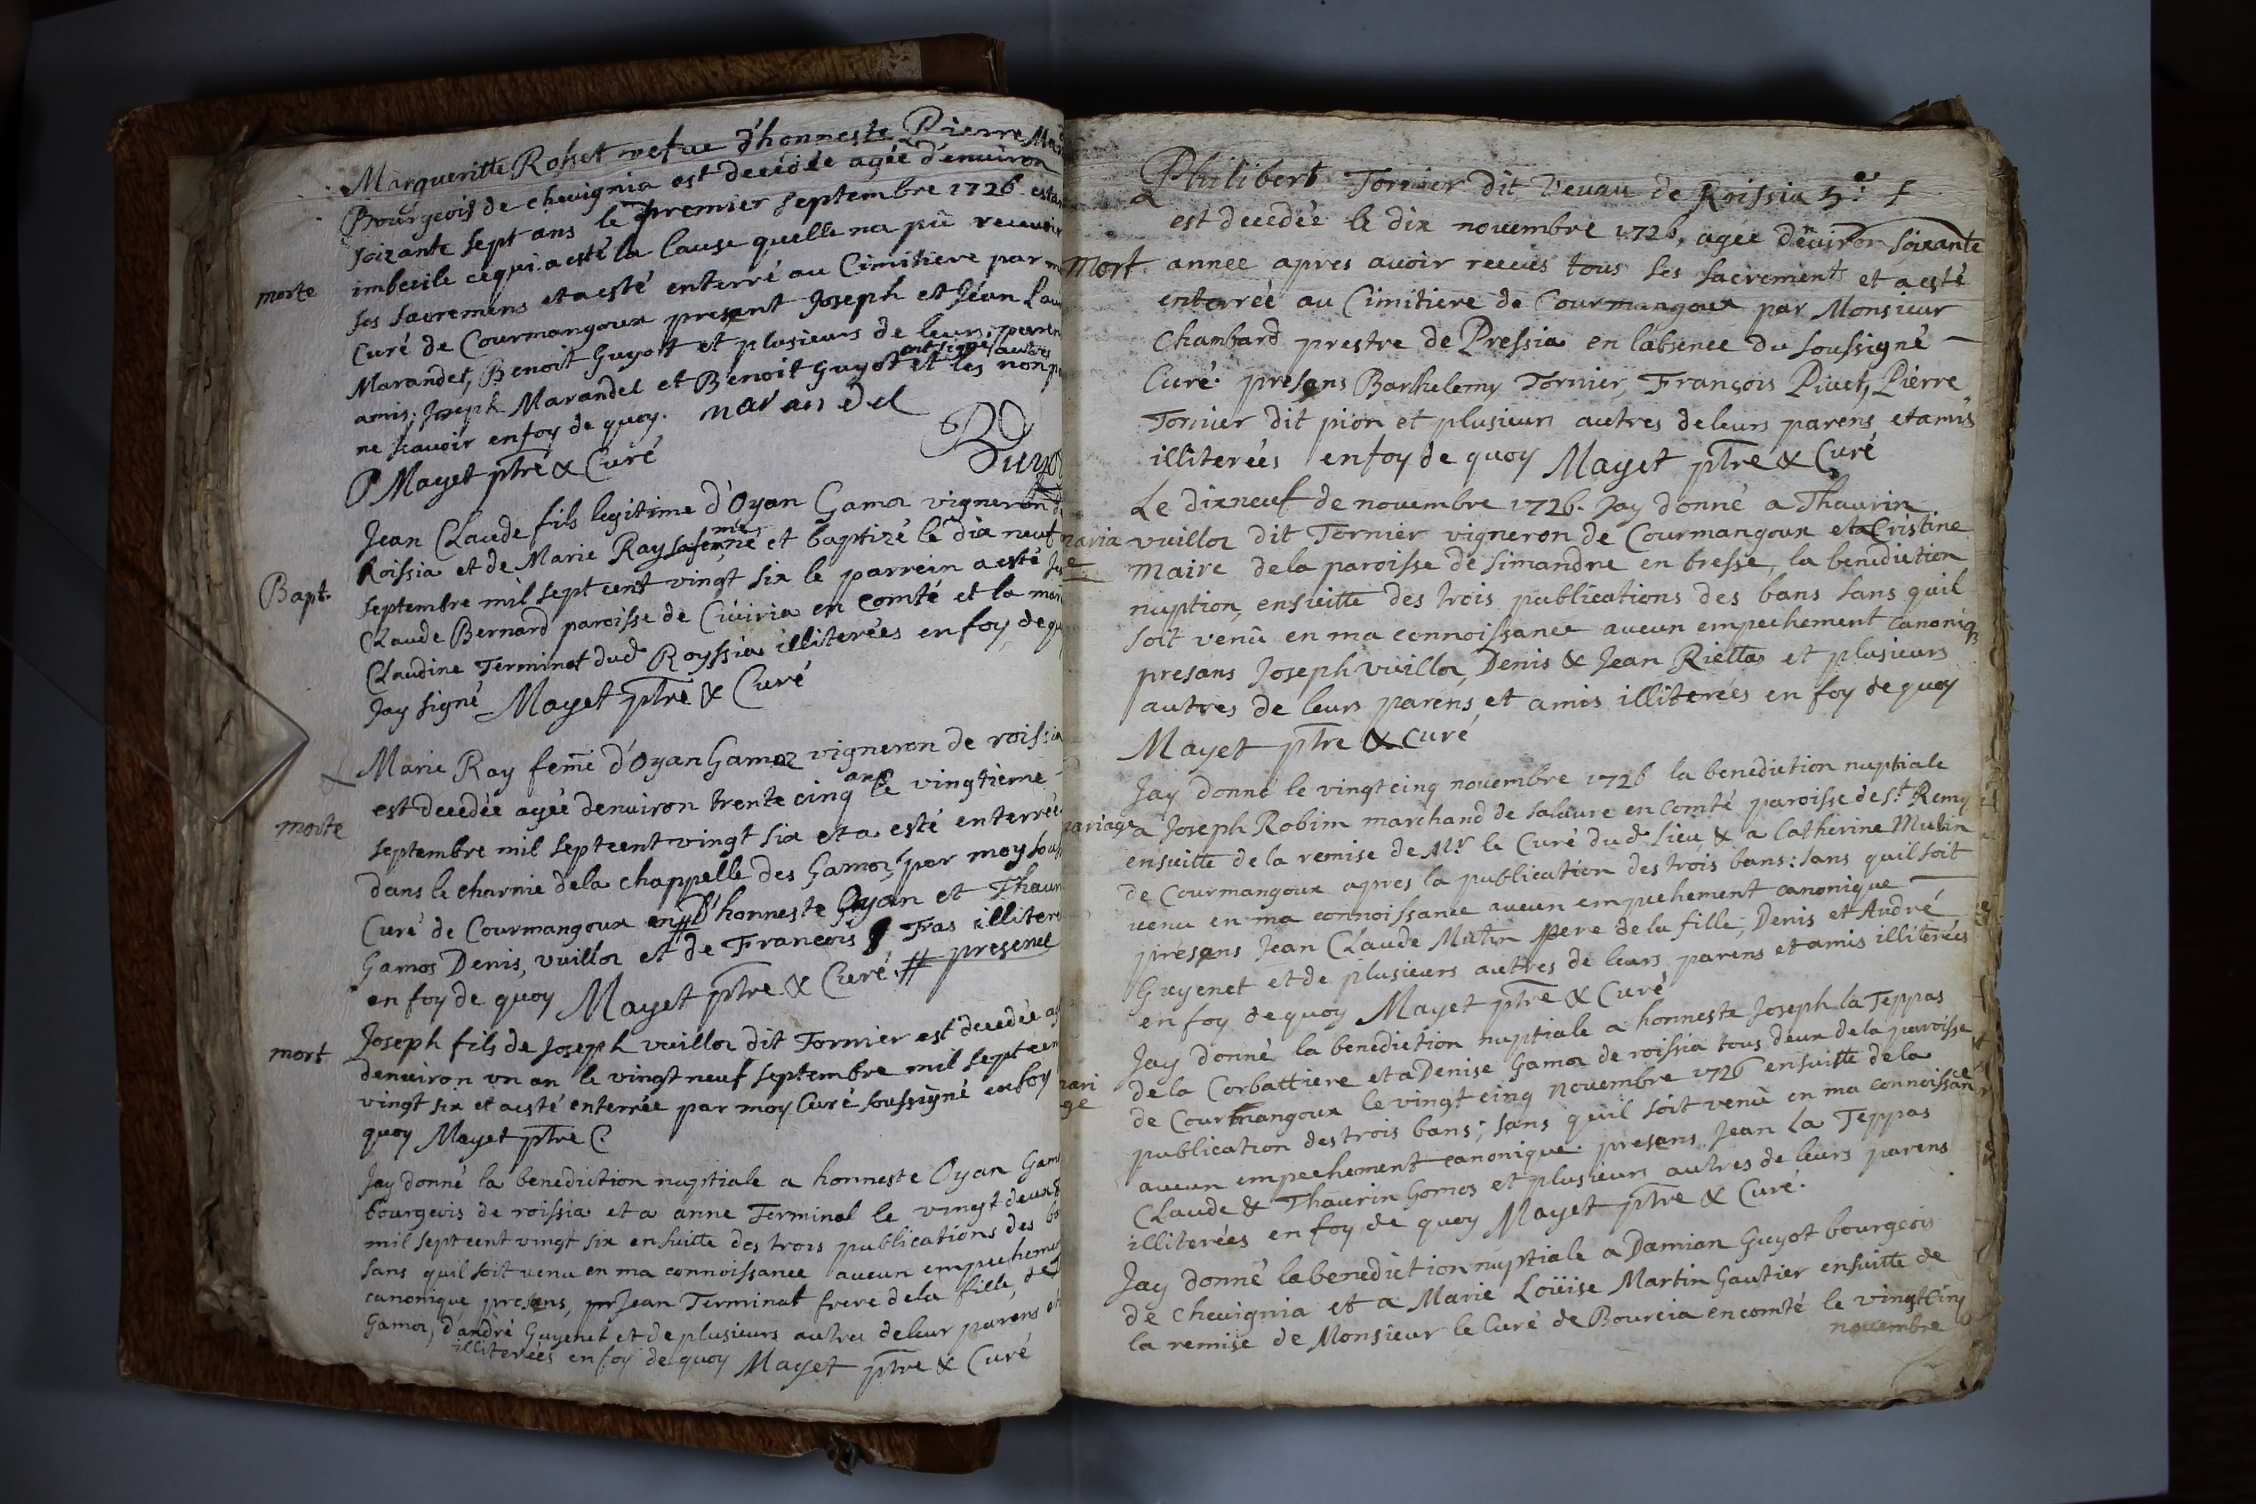 Marqueritte Rosset vefue d'honneste Pierre
Bourgeois de cheuignia est decédée agée d'enuiron
soizante sept ans le premier septembre 1726 estan
morte
imbecile cequi a esté la cause quelle na pû receuoir
ses sacremens et a esté enterré au Cimitiere par
Curé de Courmangoux present Joseph et Jéan
Marandet, Benoit Guyott et plusieurs de leurs paren
amis; Joseph Marandet et Benoit Guyot ont signé et les autres non
ne scauoir en foy de quoy. marandet
P Mayet ptre & Curé
Guyot
Jean Claude fils legitime d'Oyan Gamoz vigneron
Roissia et de Marie Ray sa femme né et baptizé lé dix neuf
Bapt.
septembre mil sept cent vingt six le parrein a esté
Claude Bernard paroisse de Ciuiria en comté et la
Claudine Terminot dud Royssia illiterées en foy de
Jay signé Mayet ptre & Curé
Marie Ray feme d'Oyan Gamoz vigneron de roissia
est decedée agée denuiron trente cinq ans le vingtieme
morte
septembre mil septcent vingt six et a esté enterrée
dans le charnie dela chappelle des Gamoz par moy
Curé de Courmangoux en # D'honneste Oyan et
Gamos Denis, vuilloz et de François Fras
en foy de quoy Mayet ptre & Curé. # presence
mort
Joseph fils de Joseph vuilloz dit Tornier est decedée
denuiron vn an le vingt neuf septembre mil sept
vingt six et aesté enterrée par moy Curé soussigné en foy
quoy Mayet ptre C.
Jay donné la benediction nuptiale a honneste Oyan
bourgeois de roissia et a anne Terminal le vingt
mil septcent vingt six ensuitte des trois publications des
sans quil soit venu en ma connoissance aucun
canonique presens, Jean Terminat frere dela fille,
Gamoz, d'andré Guyenet et de plusieurs autres deleur parens
illiterées en foy de quoy Mayet ptre & Curé
Philibert Tornier dit l'euau de Roissia
est decedée le dix nouembre 1726, agée denuiron soixante
mort
année apres auoir receus tous ses sacrement et a esté
enterrée au Cimitiere de Courmangoux par Monsieur
Chambard prestre de Pressia en labsence du soussigné
Curé presens Barthelemy Tornier, François Piuet, Pièrre
Tornier dit pion et plusieurs autres deleurs parens et amis
illiterées en foy de quoy Mayet ptre & Curé
Le dixneuf de nouembre 1726. Jay donné a Thaurin
vuilloz dit Tornier vigneron de Courmangoux et a Cristine
maire dela paroisse de simandre en bresse, la benediction
nuption, ensuitte des trois publications des bans sans quil
soit venû en ma connoissance aucun empechement canoniq
presans Joseph vuilloz, Denis & Jean Riettas et plusieurs
autres de leurs parens et amis illiterées en foy de quoy
Mayet ptre & Curé
Jay donné le vingt cinq nouembre 1726 la benediction nuptiale
a Joseph Robim marchand de salaure en Comté paroisse de St. Remy
ensuitte de la remise de Mr le Curé dud lieu, & a Catherine Mutin
de Courmangoux apres la publication des trois bans: sans quil soit
venu en ma connoissance aucun empechement canonique
presens Jean Claude Mutin pere dela fille, Denis et André
Guyenet et de plusieurs autres de leurs parens et amis illiterées
en foy de quoy Mayet ptre & Curé
Jay donné la benediction nuptiale a honneste Joseph la Teppas
de la Corbattiere et a Denise Gamoz de roissia tous deux dela paroisse
de Courmangoux le vingt cinq nouembre 1726 ensuitte dela
publication des trois bans; sans quil soit venû en ma connoissance
aucun empechement canonique presens Jean la Teppas
Claude & Thaurin Gomos et plusieurs autres de leurs parens
illiterées en foy de quoy Mayet ptre & Curé.
Jay donné la benediction nuptiale a Damian Guyot bourgeois
de cheuignia et a Marie Loüise Martin Gautier ensuitte de
la remise de Monsieur le Curé de Bourcia en comté le vingt Cinq
nouembre